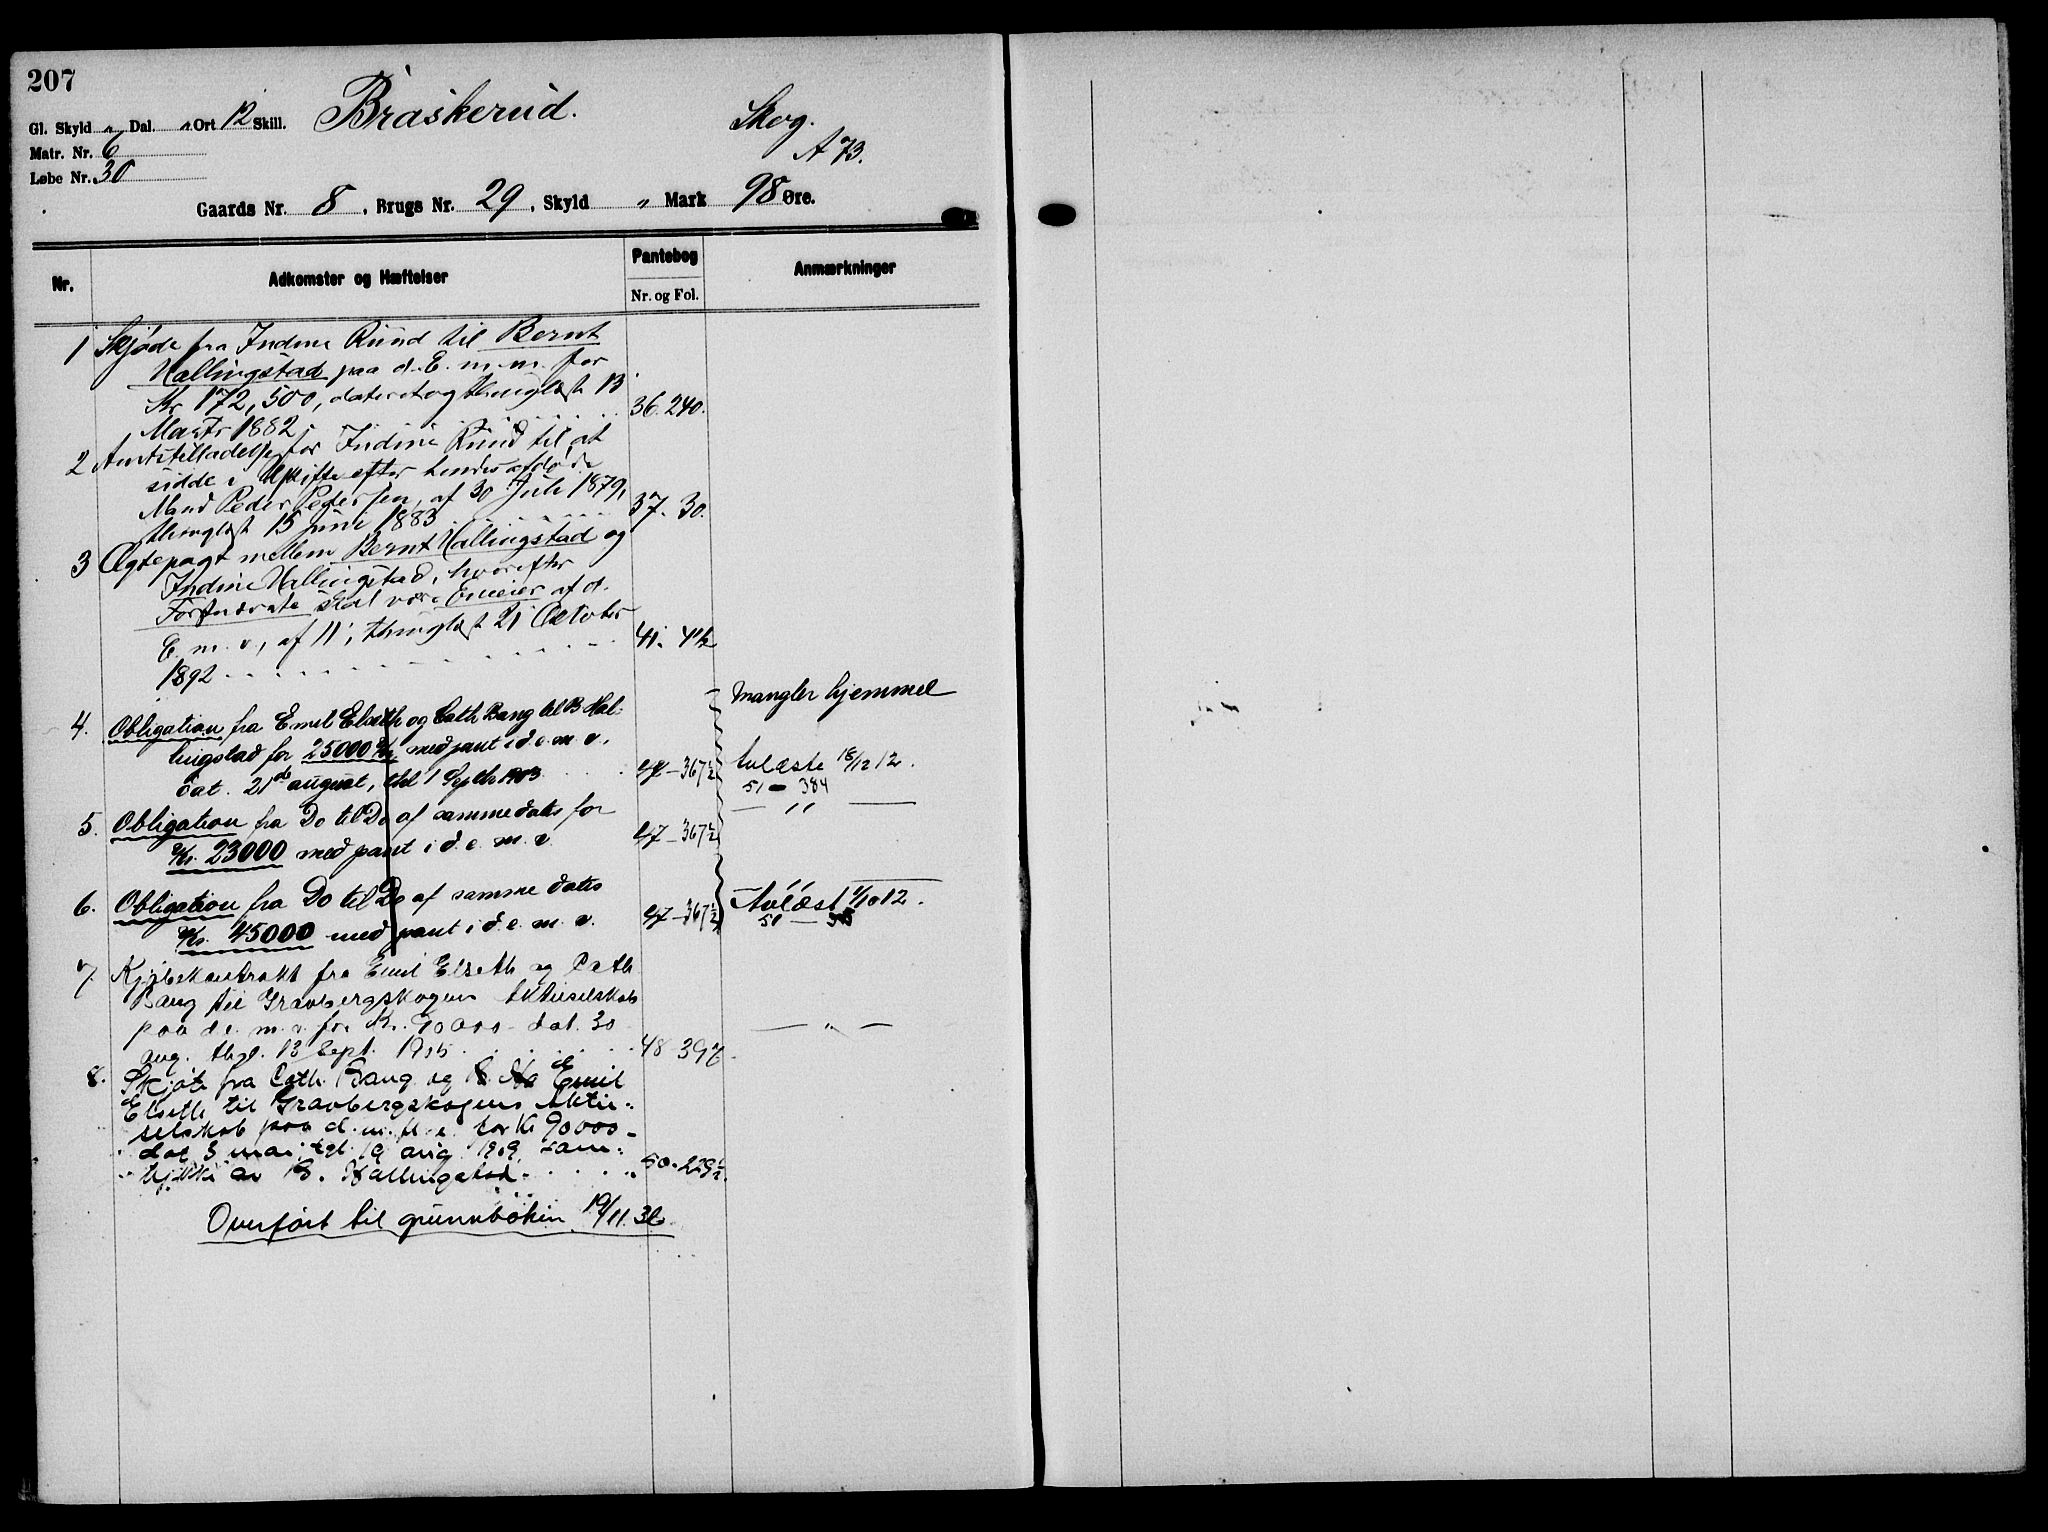 207
Gl. Skyld " Dal. " Ort 12 Skill. Braskerud. Skog.
Matr. Nr. 6 A 73.
Løbe Nr. 30
Gaards Nr. 8, Brugs Nr. 29, Skyld " Mark 98 Øre.
Nr. Adkomster og Hæftelser Pantebog Anmærkninger
Nr. og Fol.
1 Skjøde fra Indine Rund til Bernt
Hallingstad paa d. E. m. m. for
Kr 172,500, dateret og thinglæst 13
Marts 1882 36. 240.
2 Amtstilladelse for Indine Rund til at
sidde i Uskifte efter hendes afdøde
Mand Peder Pedersen, af 30 Juli 1879,
thinglæst 15 juni 1883 37. 30.
3 Ægtepagt mellem Bernt Hallingstad og
Indine Hallingstad, hvorefter
Førstnævnte skal være Eneeier af d.
E. m. v., af 11, thinglæst 21 October
1892 41. 4 1/2
mangler hjemmel
4. Obligation fra Emil Elseth og Cath Bang til B Hal-
lingstad for 25000 Kr med pant i d. e. m. v.
dat. 21de august, thl 1 Septbr 1903 47 - 367 1/2 Avlæste 18/12 12.
51 - 384
5. Obligation fra Do til Do af samme dato for — " —
Kr. 23000 med pant i d. e. m. v. 47 - 367 1/2
6. Obligation fra Do til Do af samme dato — " —
Kr. 45000 med pant i d. e. m. v. 47 - 367 1/2 Avlæst 1/10 12.
51 —
7. Kjøbekontrakt fra Emil Elseth og Cath
Bang til Gravbergskogens Aktieselskab
paa d. e. m. v. for Kr. 90000 - dat. 30 — " —
aug. thgl. 13 Sept. 1905 48 - 397
8. Skjøte fra Cath. Bang og Emil
Elseth til Gravbergskogens Aktie-
selskab paa d. m. fl. e. for Kr 90000 -
dat 3 mai, tgl. 19 aug 1909, sam-
tykke av B. Hallingstad 50. 229 1/2
Overført til grunnboken 19/11. 36